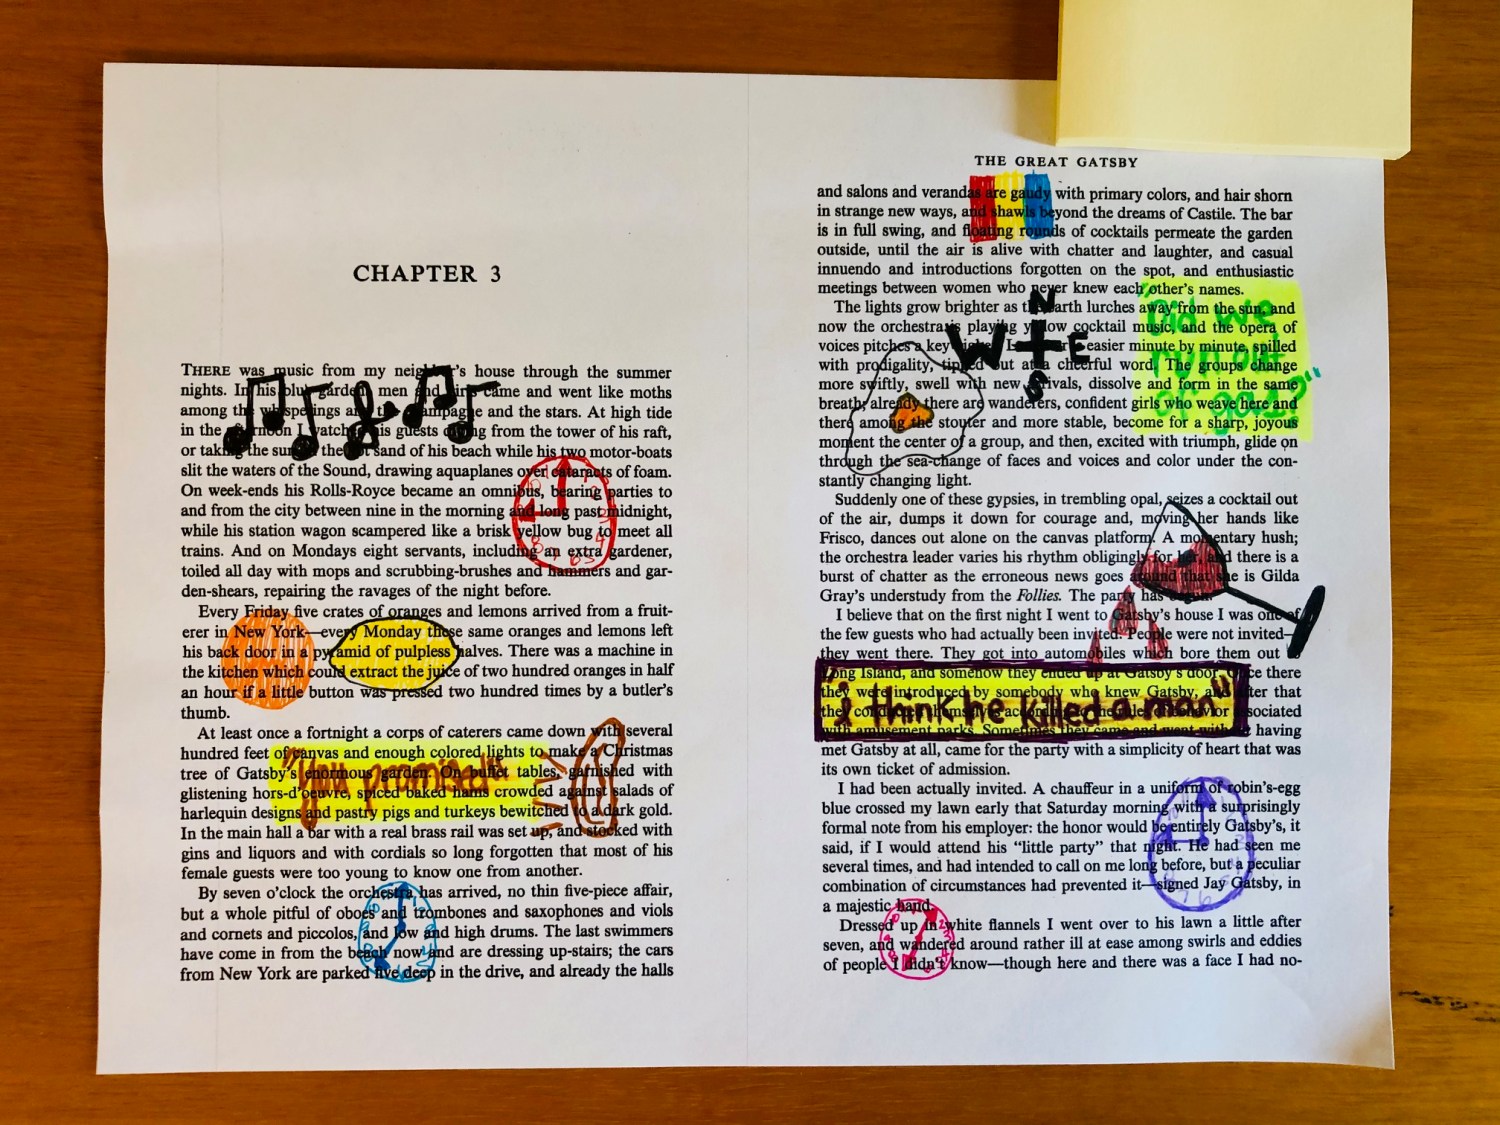 CHAPTER 3
THERE was music from my neighbor's house through the summer
nights. In his blue gardens men and girls came and went like moths
among the whisperings and the champagne and the stars. At high tide
in the afternoon I watched his guests diving from the tower of his raft,
or taking the sun on the hot sand of his beach while his two motor-boats
slit the waters of the Sound, drawing aquaplanes over cataracts of foam.
On week-ends his Rolls-Royce became an omnibus, bearing parties to
and from the city between nine in the morning and long past midnight,
while his station wagon scampered like a brisk yellow bug to meet all
trains. And on Mondays eight servants, including an extra gardener,
toiled all day with mops and scrubbing-brushes and hammers and gar-
den-shears, repairing the ravages of the night before.
Every Friday five crates of oranges and lemons arrived from a fruit-
erer in New York—every Monday these same oranges and lemons left
his back door in a pyramid of pulpless halves. There was a machine in
the kitchen which could extract the juice of two hundred oranges in half
an hour if a little button was pressed two hundred times by a butler's
thumb.
At least once a fortnight a corps of caterers came down with several
hundred feet of canvas and enough colored lights to make a Christmas
tree of Gatsby's enormous garden. On buffet tables, garnished with
glistening hors-d'oeuvre, spiced baked hams crowded against salads of
harlequin designs and pastry pigs and turkeys bewitched to a dark gold.
"You promised!"
In the main hall a bar with a real brass rail was set up, and stocked with
gins and liquors and with cordials so long forgotten that most of his
female guests were too young to know one from another.
By seven o'clock the orchestra has arrived, no thin five-piece affair,
but a whole pitful of oboes and trombones and saxophones and viols
and cornets and piccolos, and low and high drums. The last swimmers
have come in from the beach now and are dressing up-stairs; the cars
from New York are parked five deep in the drive, and already the halls
THE GREAT GATSBY
and salons and verandas are gaudy with primary colors, and hair shorn
in strange new ways, and shawls beyond the dreams of Castile. The bar
is in full swing, and floating rounds of cocktails permeate the garden
outside, until the air is alive with chatter and laughter, and casual
innuendo and introductions forgotten on the spot, and enthusiastic
meetings between women who never knew each other's names.
The lights grow brighter as the earth lurches away from the sun, and
now the orchestra is playing yellow cocktail music, and the opera of
voices pitches a key higher. Laughter is easier minute by minute, spilled
with prodigality, tipped out at a cheerful word. The groups change
more swiftly, swell with new arrivals, dissolve and form in the same
breath; already there are wanderers, confident girls who weave here and
there among the stouter and more stable, become for a sharp, joyous
moment the center of a group, and then, excited with triumph, glide on
through the sea-change of faces and voices and color under the con-
stantly changing light.
N
W E
S
"Did we
run out
of gas?"
Suddenly one of these gypsies, in trembling opal, seizes a cocktail out
of the air, dumps it down for courage and, moving her hands like
Frisco, dances out alone on the canvas platform. A momentary hush;
the orchestra leader varies his rhythm obligingly for her, and there is a
burst of chatter as the erroneous news goes around that she is Gilda
Gray's understudy from the Follies. The party has begun.
I believe that on the first night I went to Gatsby's house I was one of
the few guests who had actually been invited. People were not invited—
they went there. They got into automobiles which bore them out to
Long Island, and somehow they ended up at Gatsby's door. Once there
they were introduced by somebody who knew Gatsby, and after that
they conducted themselves according to the rules of behavior associated
with amusement parks. Sometimes they came and went without having
"I think he killed a man"
met Gatsby at all, came for the party with a simplicity of heart that was
its own ticket of admission.
I had been actually invited. A chauffeur in a uniform of robin's-egg
blue crossed my lawn early that Saturday morning with a surprisingly
formal note from his employer: the honor would be entirely Gatsby's, it
said, if I would attend his “little party” that night. He had seen me
several times, and had intended to call on me long before, but a peculiar
combination of circumstances had prevented it—signed Jay Gatsby, in
a majestic hand.
Dressed up in white flannels I went over to his lawn a little after
seven, and wandered around rather ill at ease among swirls and eddies
of people I didn't know—though here and there was a face I had no-